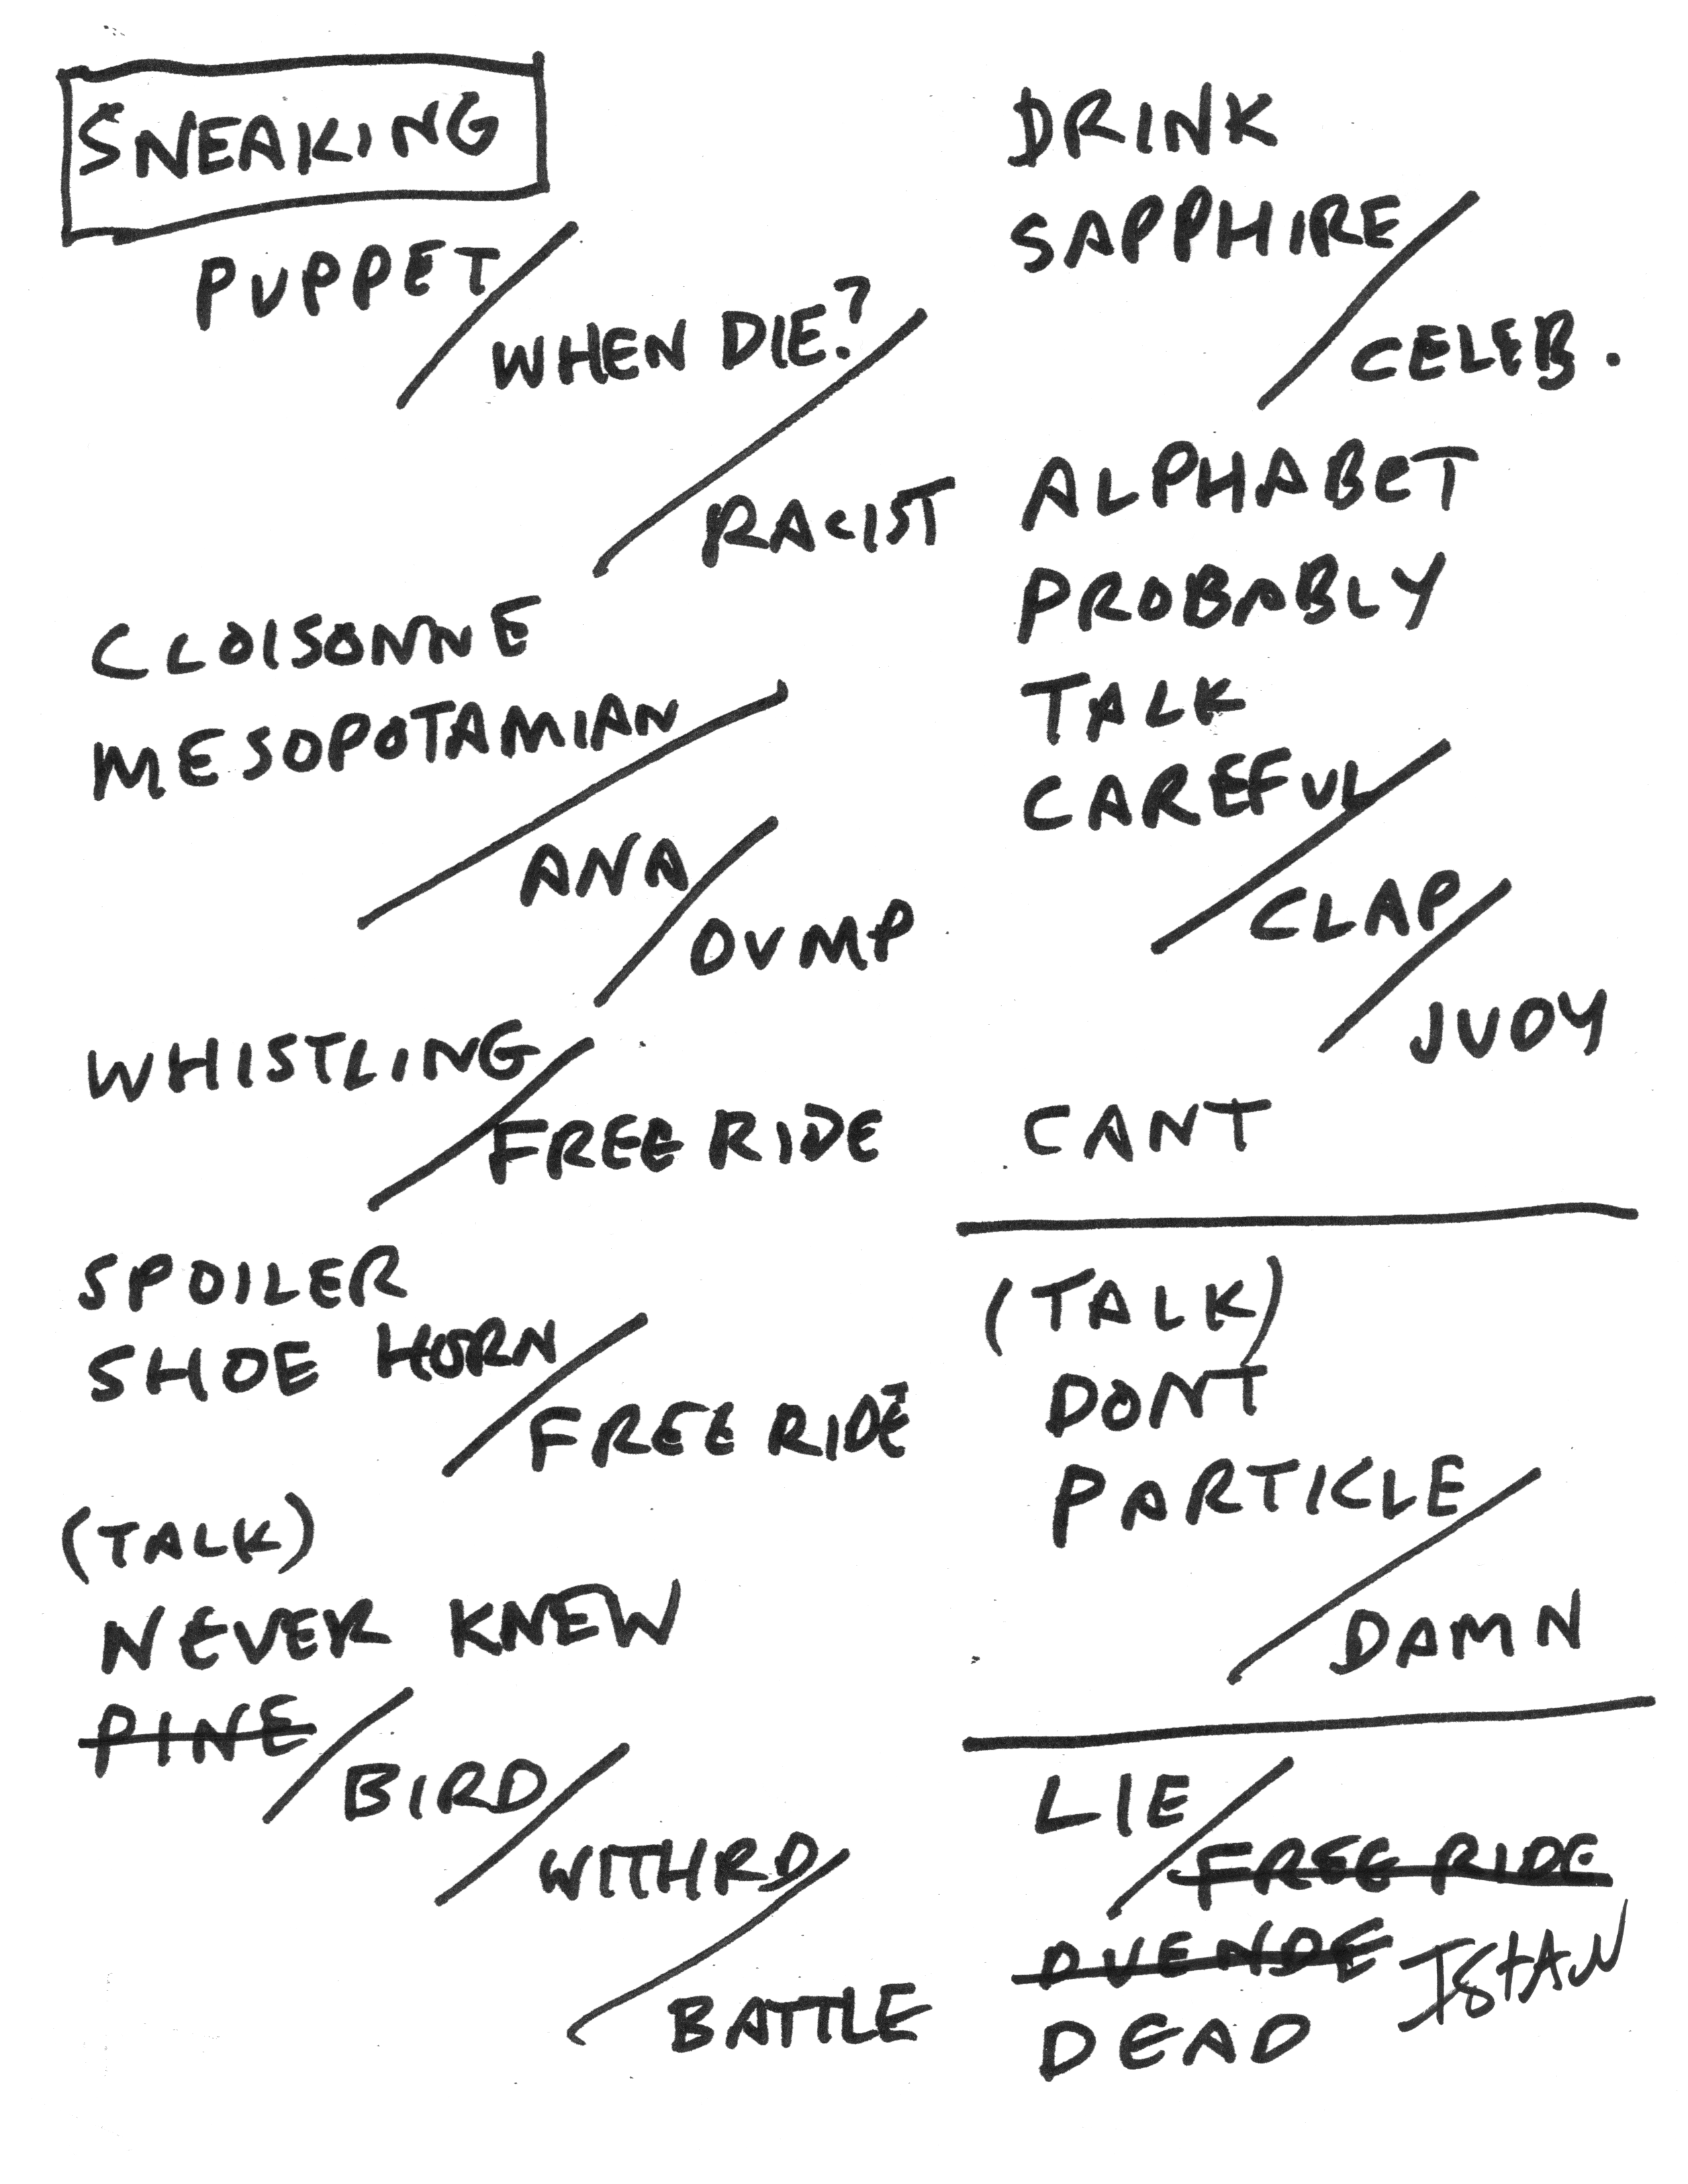 SNEAKING
PUPPET/
WHEN DIE?/
RACIST
CLOISONNE
MESOPOTAMIAN/
ANA/
DUMP
WHISTLING/
FREE RIDE
SPOILER
SHOE HORN/
FREE RIDE
(TALK)
NEVER KNEW
PINE/
BIRD/
WITHRD/
BATTLE
DRINK
SAPPHIRE/
CELEB.
ALPHABET
PROBABLY
TALK
CAREFUL/
CLAP/
JUDY
CANT
(TALK)
DONT
PARTICLE/
DAMN
LIE/
FREE RIDE
DUENDE ISTAN
DEAD